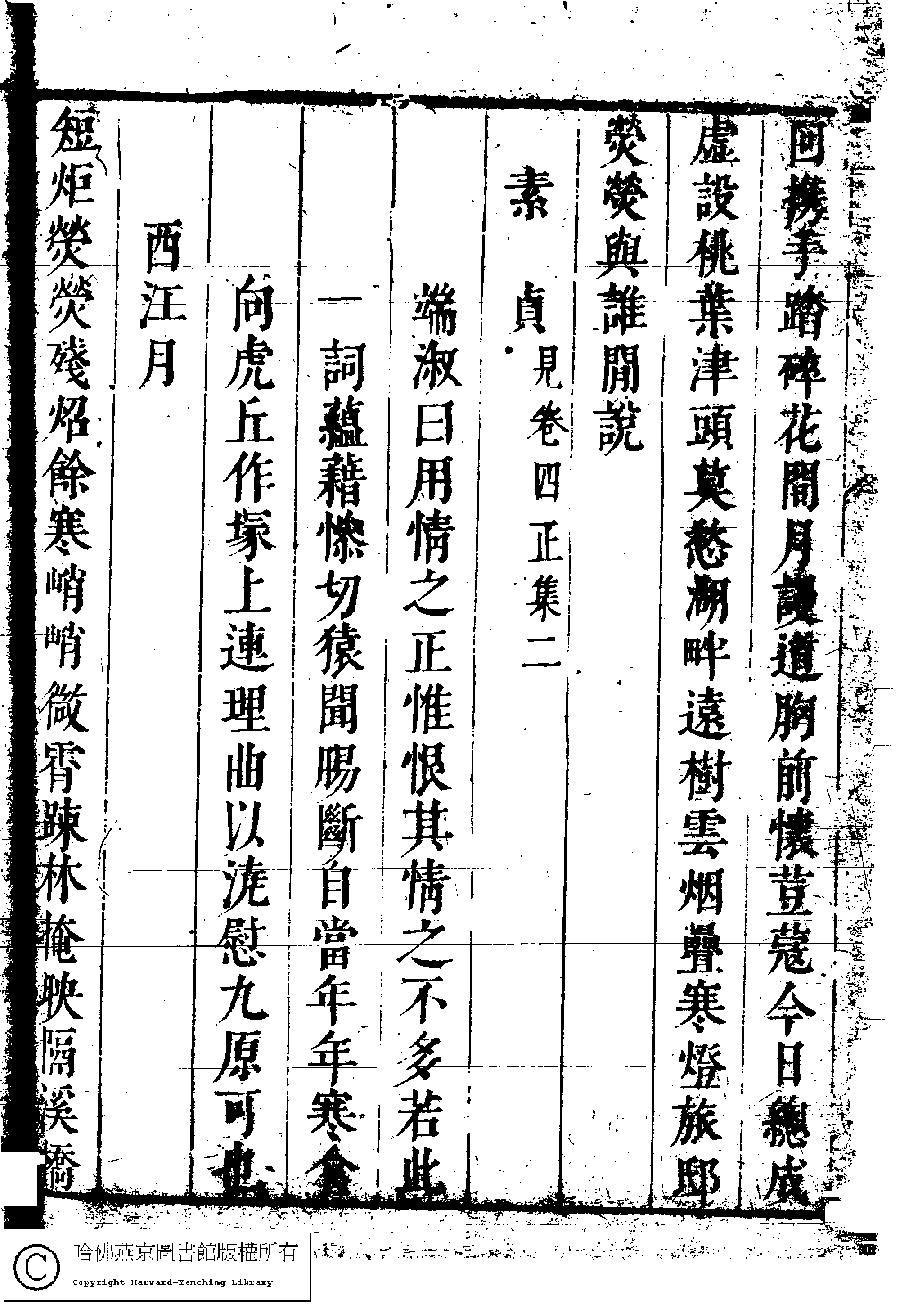 回携手踏碎花間月謾道胸前懷荳蔻今日總成
虛設桃葉津頭莫愁湖畔遠樹雲烟疊寒燈旅邸
熒熒與誰閒說
素貞見卷四正集二
端淑曰用情之正惟恨其情之不多若此
一詞蘊藉悽切猿聞腸斷自當年年寒食
向虎丘作塚上連理曲以澆慰九原可也
西江月
短炬熒熒殘炤餘寒峭峭微霄踈林掩映隔溪橋
哈佛燕京圖書館版權所有
Copyright Harvard-Yenching Library